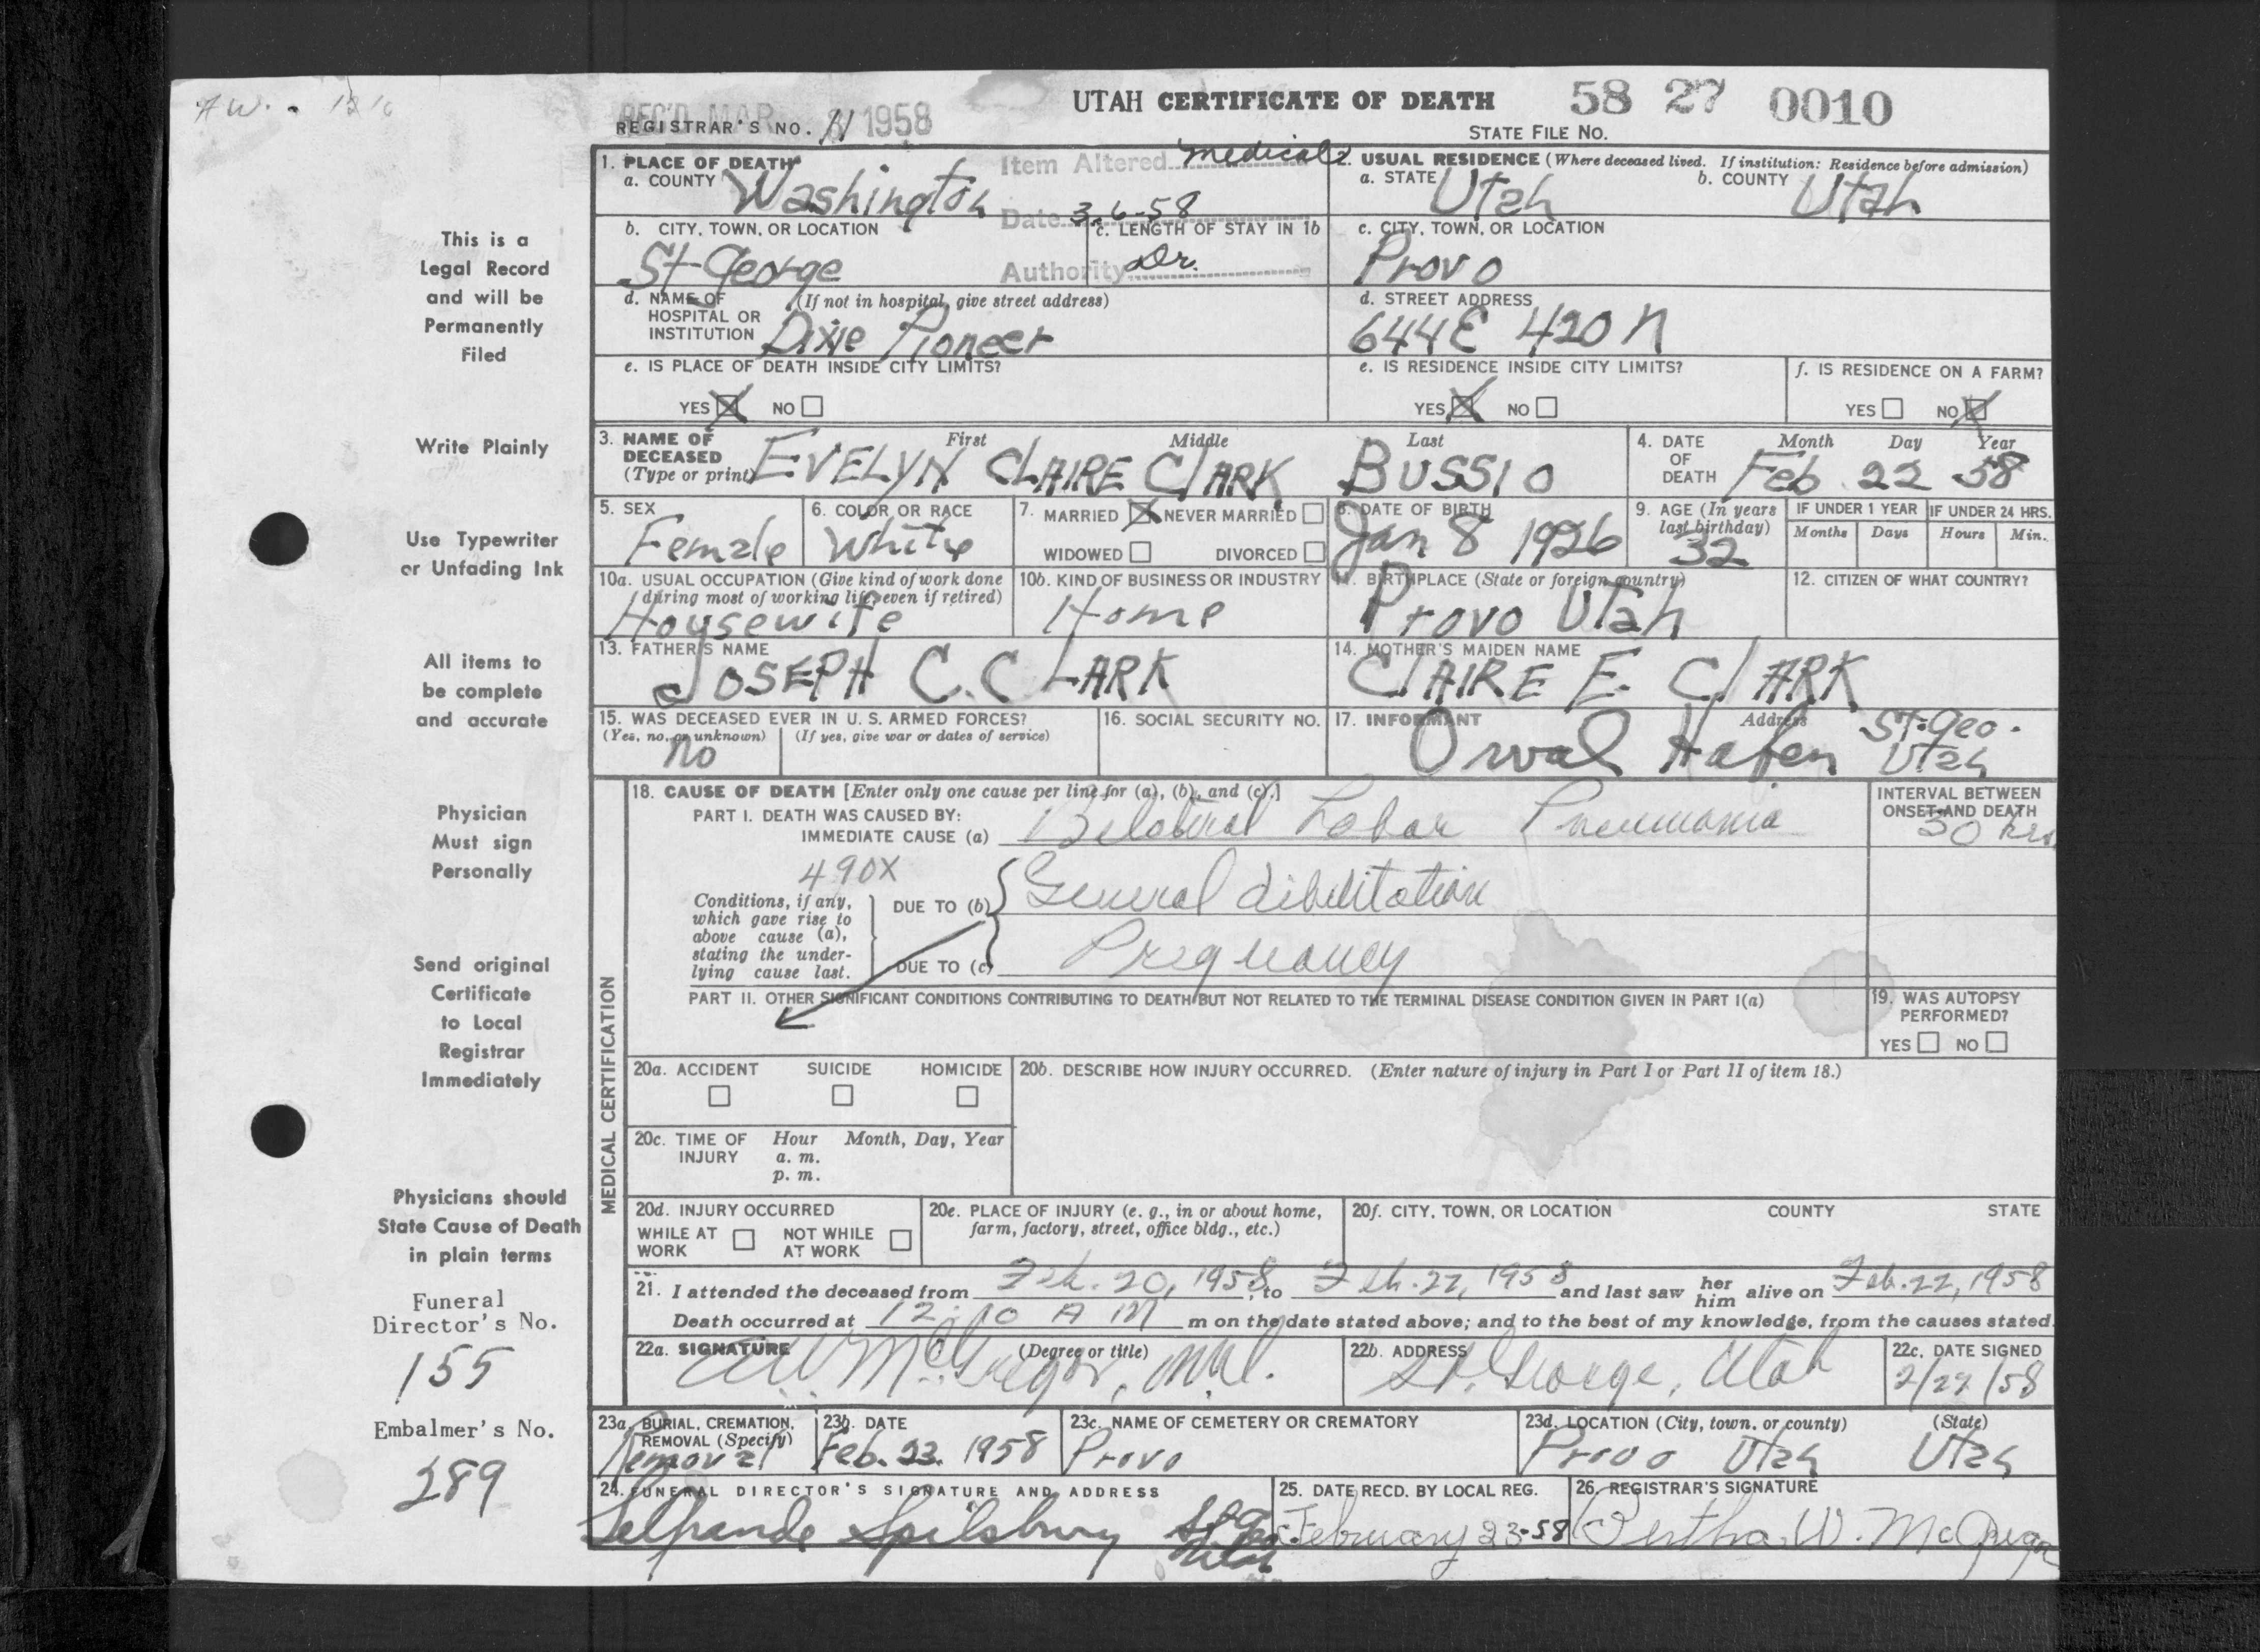 UTAH CERTIFICATE OF DEATH 58 27 0010
REC'D MAR 1958
REGISTRAR'S NO. 11
STATE FILE NO.
1. PLACE OF DEATH
a. COUNTY Washington
Item Altered medical
Date 3-6-58
Authority Dr.
2. USUAL RESIDENCE (Where deceased lived. If institution: Residence before admission)
a. STATE Utah b. COUNTY Utah
b. CITY, TOWN, OR LOCATION St George
c. LENGTH OF STAY IN 1b
c. CITY, TOWN, OR LOCATION Provo
d. NAME OF HOSPITAL OR INSTITUTION (If not in hospital, give street address) Dixie Pioneer
d. STREET ADDRESS 644 E 420 N
e. IS PLACE OF DEATH INSIDE CITY LIMITS?
YES X NO
e. IS RESIDENCE INSIDE CITY LIMITS?
YES X NO
f. IS RESIDENCE ON A FARM?
YES NO X
3. NAME OF DECEASED (Type or print) First Middle Last
EVELYN CLAIRE ClARK BUSSIO
4. DATE OF DEATH Month Day Year
Feb 22 58
5. SEX Female
6. COLOR OR RACE White
7. MARRIED X NEVER MARRIED
WIDOWED DIVORCED
8. DATE OF BIRTH Jan 8 1926
9. AGE (In years last birthday) 32
IF UNDER 1 YEAR Months Days
IF UNDER 24 HRS. Hours Min.
10a. USUAL OCCUPATION (Give kind of work done during most of working life, even if retired)
Housewife
10b. KIND OF BUSINESS OR INDUSTRY
Home
11. BIRTHPLACE (State or foreign country)
Provo Utah
12. CITIZEN OF WHAT COUNTRY?
13. FATHER'S NAME
JOSEPH C. CLARK
14. MOTHER'S MAIDEN NAME
ClAIRE E. ClARK
15. WAS DECEASED EVER IN U. S. ARMED FORCES?
(Yes, no, or unknown) (If yes, give war or dates of service)
no
16. SOCIAL SECURITY NO.
17. INFORMANT Address
Orval Hafen St. Geo. Utah
MEDICAL CERTIFICATION
18. CAUSE OF DEATH [Enter only one cause per line for (a), (b), and (c).]
PART I. DEATH WAS CAUSED BY:
IMMEDIATE CAUSE (a) Bilateral Lobar Pneumonia
INTERVAL BETWEEN ONSET AND DEATH
30 hrs.
490X
Conditions, if any, which gave rise to above cause (a), stating the underlying cause last.
DUE TO (b) General dibilitation
DUE TO (c) Pregnancy
PART II. OTHER SIGNIFICANT CONDITIONS CONTRIBUTING TO DEATH BUT NOT RELATED TO THE TERMINAL DISEASE CONDITION GIVEN IN PART I(a)
19. WAS AUTOPSY PERFORMED?
YES NO
20a. ACCIDENT SUICIDE HOMICIDE
20b. DESCRIBE HOW INJURY OCCURRED. (Enter nature of injury in Part I or Part II of item 18.)
20c. TIME OF INJURY Hour Month, Day, Year
a. m.
p. m.
20d. INJURY OCCURRED
WHILE AT WORK NOT WHILE AT WORK
20e. PLACE OF INJURY (e. g., in or about home, farm, factory, street, office bldg., etc.)
20f. CITY, TOWN, OR LOCATION COUNTY STATE
21. I attended the deceased from Feb. 20, 1958, to Feb. 22, 1958 and last saw her him alive on Feb. 22, 1958
Death occurred at 12:10 A M m on the date stated above; and to the best of my knowledge, from the causes stated.
22a. SIGNATURE (Degree or title)
AW McGregor, M.D.
22b. ADDRESS
St. George, Utah
22c. DATE SIGNED
2/22/58
23a. BURIAL, CREMATION, REMOVAL (Specify)
Removal
23b. DATE
Feb. 23. 1958
23c. NAME OF CEMETERY OR CREMATORY
Provo
23d. LOCATION (City, town, or county) (State)
Provo Utah Utah
24. FUNERAL DIRECTOR'S SIGNATURE AND ADDRESS
Spilsbury St. Geo. Utah
25. DATE RECD. BY LOCAL REG.
February 23-58
26. REGISTRAR'S SIGNATURE
Bertha W. McGregor
This is a
Legal Record
and will be
Permanently
Filed
Write Plainly
Use Typewriter
or Unfading Ink
All items to
be complete
and accurate
Physician
Must sign
Personally
Send original
Certificate
to Local
Registrar
Immediately
Physicians should
State Cause of Death
in plain terms
Funeral
Director's No.
155
Embalmer's No.
289